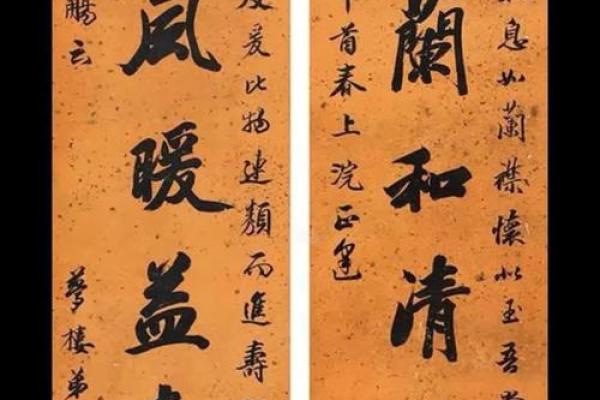 息如蘭襟懷似玉吾
蘭和清
首春上浣正逢
爰比物連類而進壽
風暖益
鵬云
夢樓弟